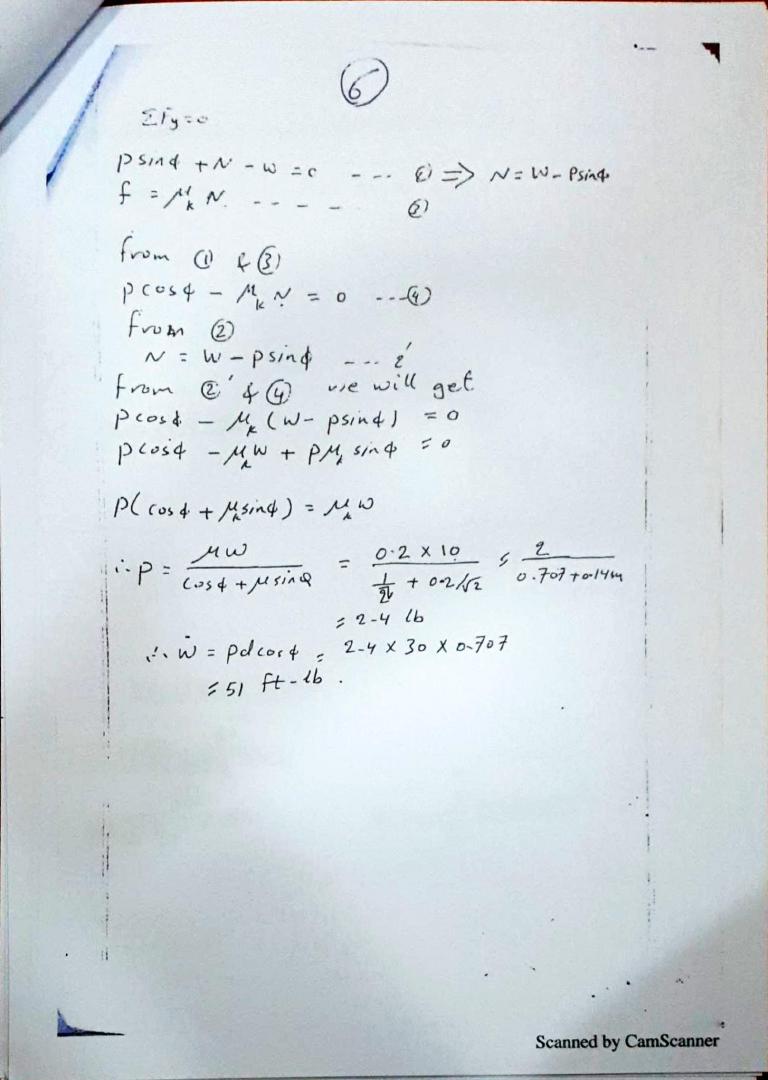 6
ΣFy=0
psinϕ + N - W = 0 --- ② ⇒ N = W - Psinϕ
f = μk N. - - - - - ③
from ① & ③
pcosϕ - μk N = 0 ---④
from ②
N = W - psinϕ --- 2'
from ②' & ④ we will get
pcosϕ - μk (W - psinϕ) = 0
pcosϕ - μk W + Pμk sinϕ = 0
P(cosϕ + μk sinϕ) = μk W
∴ P = μW / (cosϕ + μ sinϕ) = 0.2 × 10 / (1/√2 + 0.2/√2) = 2 / (0.707 + 0.1414)
= 2-4 lb
∴ W = Pdcosϕ = 2-4 × 30 × 0.707
= 51 ft-lb.
Scanned by CamScanner